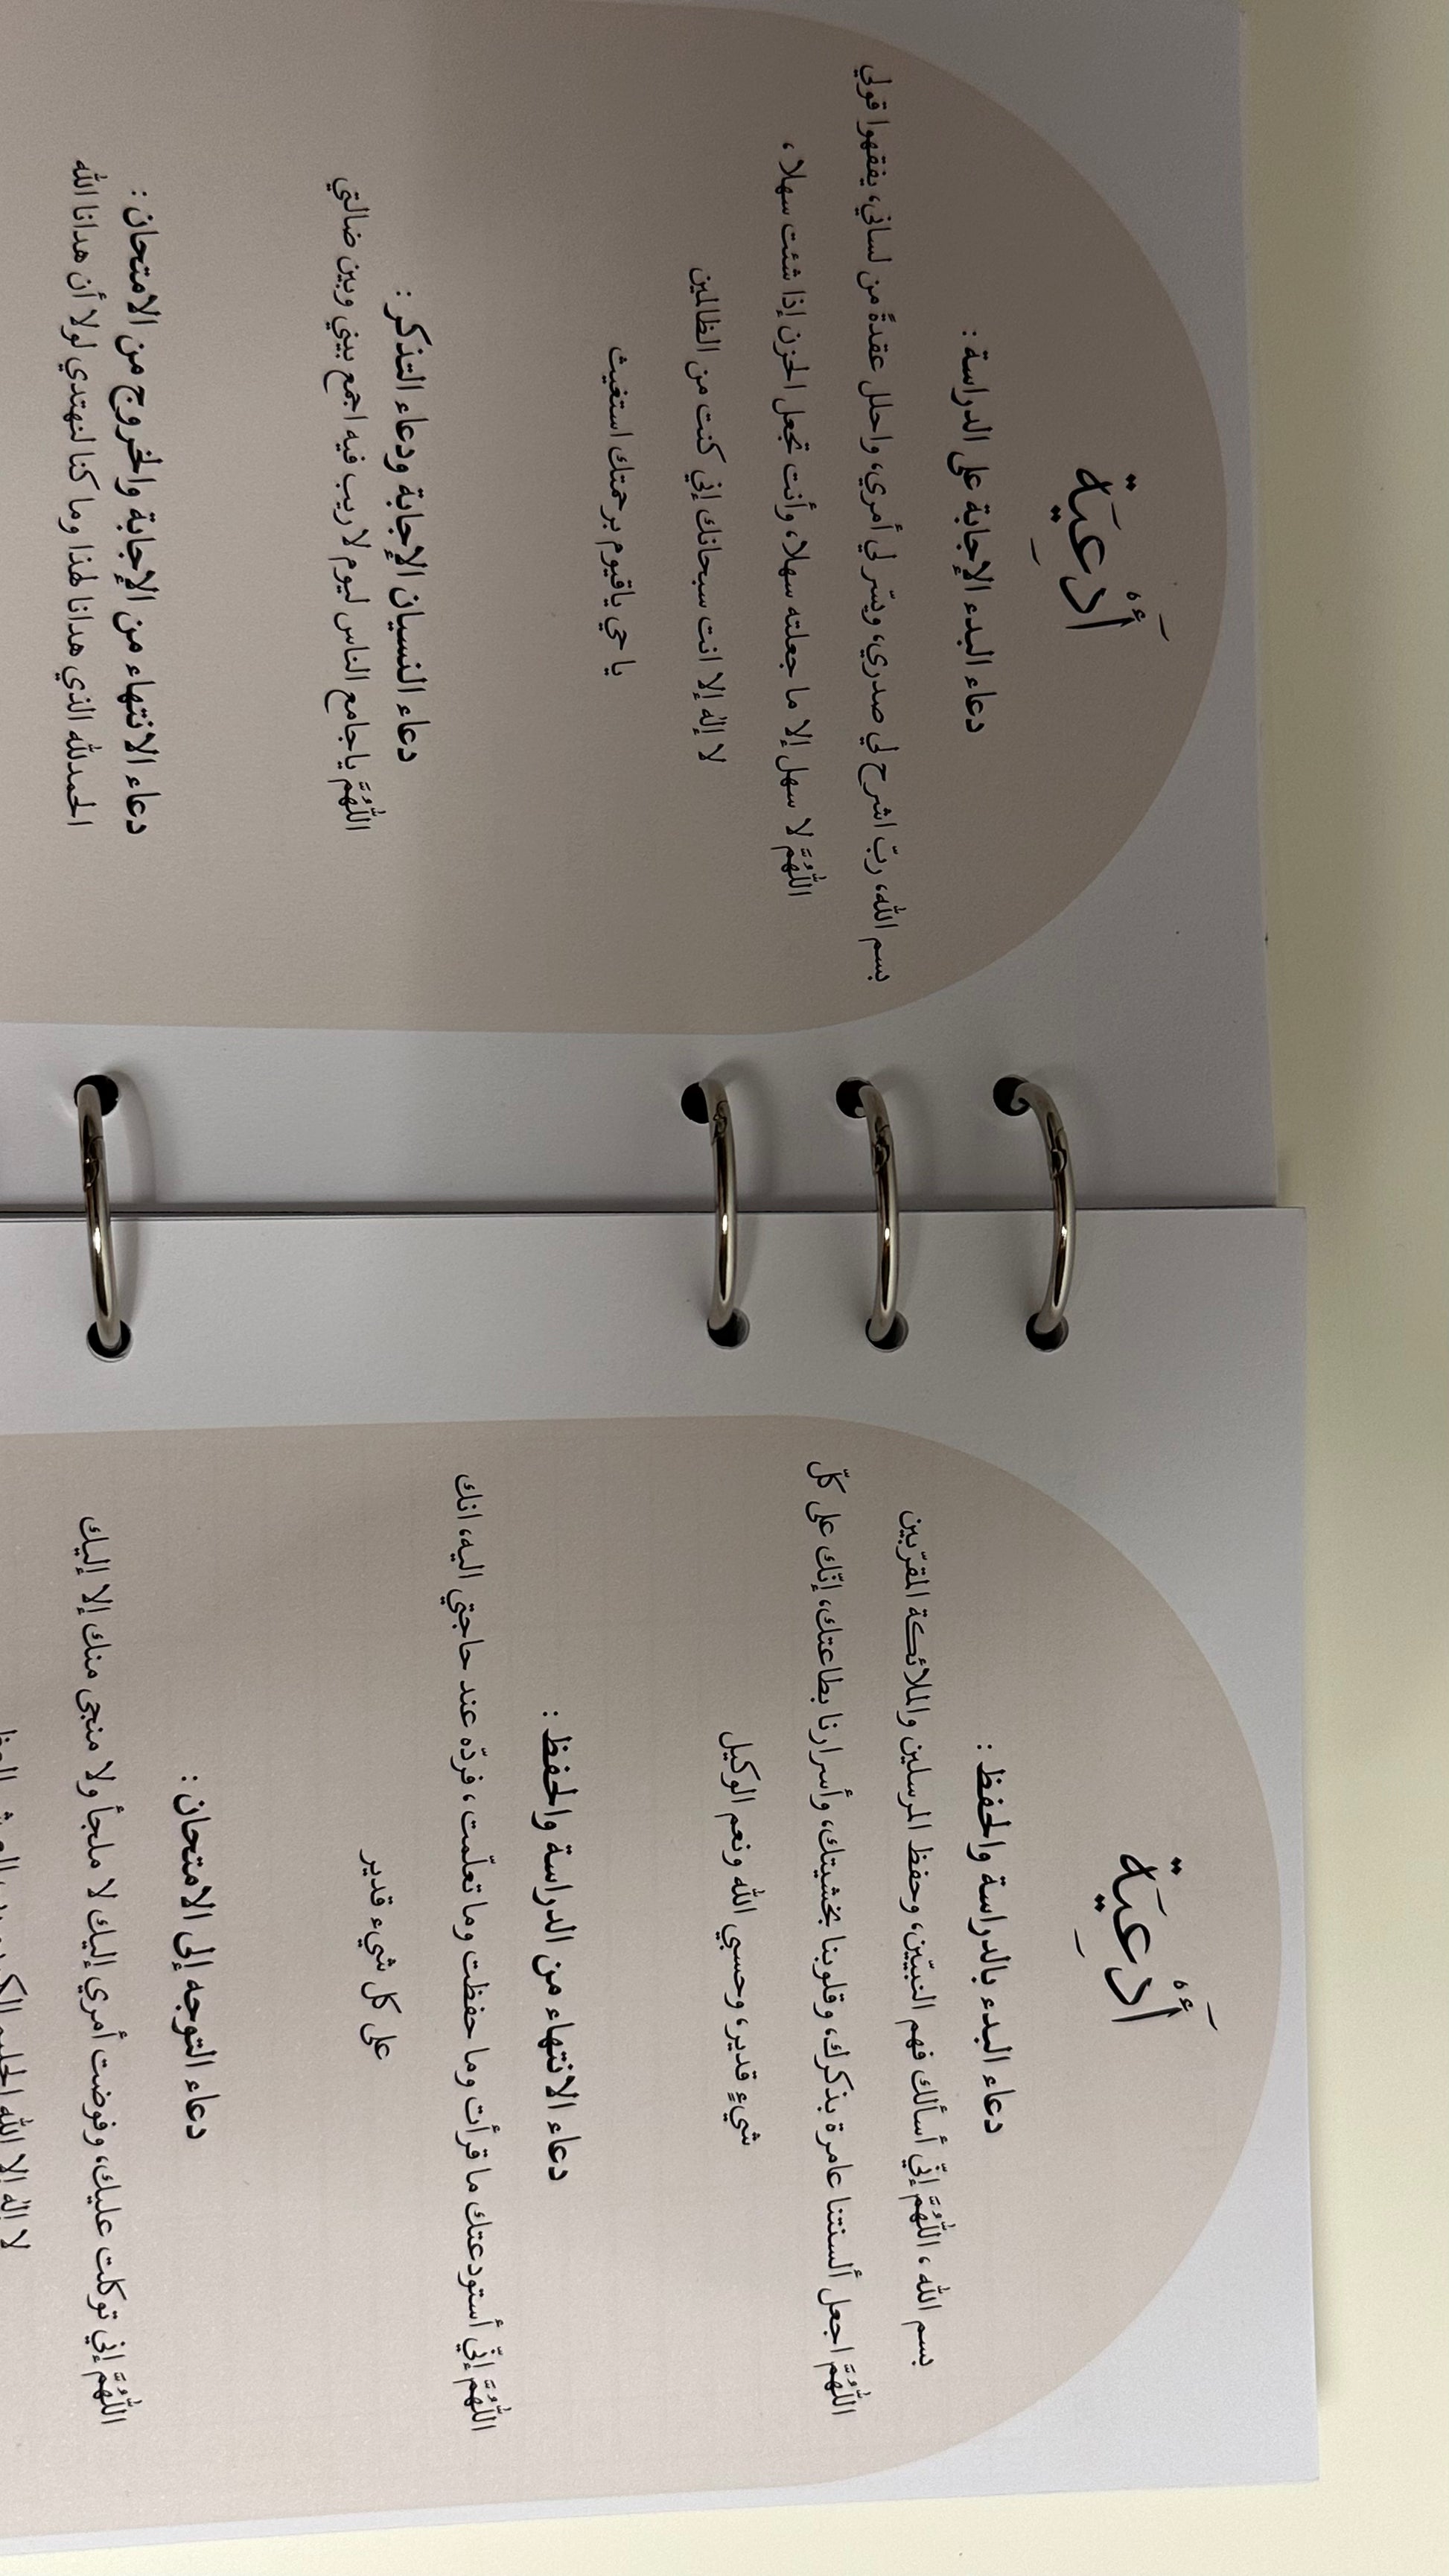 أَدعِيَة
دعاء البدء بالدراسة والحفظ :
بسم الله ، اللَّهُمَّ إنّي أسألك فهم النبيّين، وحفظ المرسلين والملائكة المقرّبين
اللَّهُمَّ اجعل ألسنتنا عامرة بذكرك، وقلوبنا بخشيتك، وأسرارنا بطاعتك، إنّك على كلّ
شيءٍ قدير، وحسبي الله ونعم الوكيل
دعاء الانتهاء من الدراسة والحفظ :
اللَّهُمَّ إنّي أستودعتك ما قرأت وما حفظت وما تعلّمت ، فردّه عند حاجتي اليه، انك
على كل شيء قدير
دعاء التوجه إلى الامتحان :
اللَّهُمَّ إني توكلت عليك، وفوضت أمري إليك لا ملجأ ولا منجى منك إلا إليك
لا اله إلا الله الحليم
أَدعِيَة
دعاء البدء الإجابة على الدراسة :
بسم الله، ربّ اشرح لي صدري، ويسّر لي أمري، واحلل عقدةً من لساني، يفقهوا قولي
اللَّهُمَّ لا سهل إلا ما جعلته سهلا، وأنت تجعل الحزن إذا شئت سهلا ،
لا إله إلا انت سبحانك إني كنت من الظالمين
يا حي ياقيوم برحمتك استغيث
دعاء النسيان الإجابة ودعاء التذكر :
اللَّهُمَّ ياجامع الناس ليوم لا ريب فيه اجمع بيني وبين ضالتي
دعاء الانتهاء من الإجابة والخروج من الامتحان :
الحمدلله الذي هدانا لهذا وما كنا لنهتدي لولا أن هدانا الله